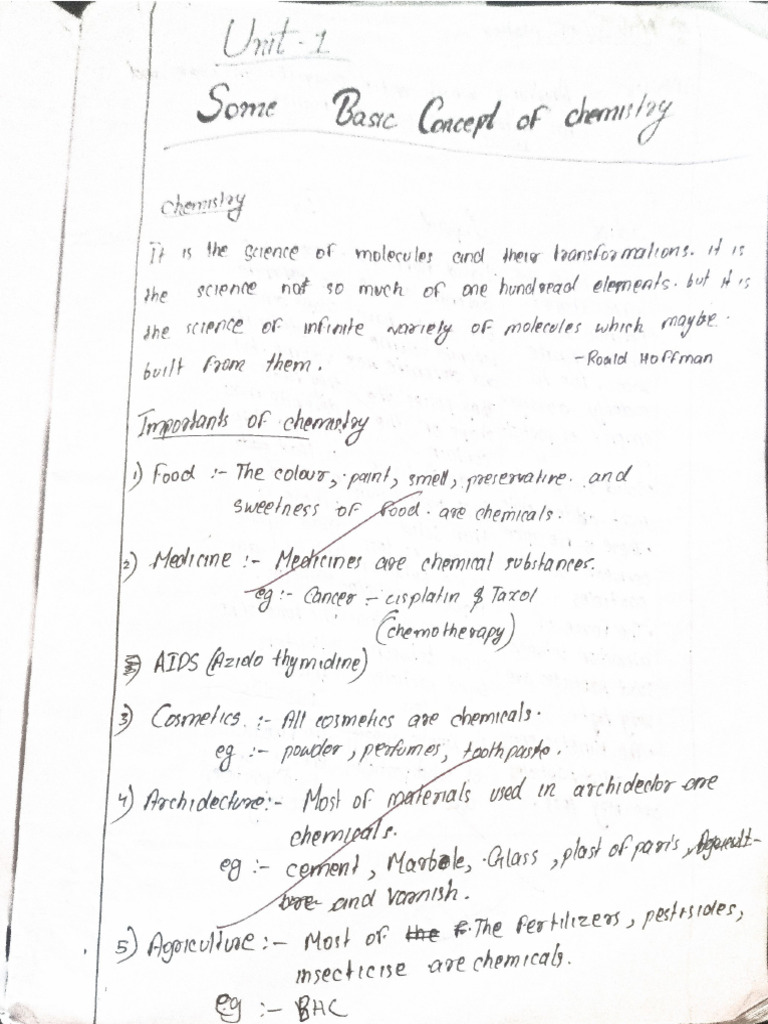 Unit - 1
Some Basic Concept of chemistry
chemistry
It is the science of molecules and their transformations. it is
the science not so much of one hundread elements. but it is
the science of infinite variety of molecules which maybe.
built from them.
-Roald Hoffman
Importants of chemistry
1) Food :- The colour, paint, smell, preservative. and
sweetness of food. are chemicals.
2) Medicine :- Medicines are chemical substances.
eg :- Cancer - cisplatin & Taxol
(chemotherapy)
AIDS (Azido thymidine)
3) Cosmetics :- All cosmetics are chemicals.
eg :- powder, perfumes, toothpaste.
4) Archidecture:- Most of materials used in archidector are
chemicals.
eg :- cement, Marbele, Glass, plast of paris,
and varnish.
5) Agriculture :- Most of the f. The fertilizers, pestisides,
insecticise are chemicals.
eg :- BHC